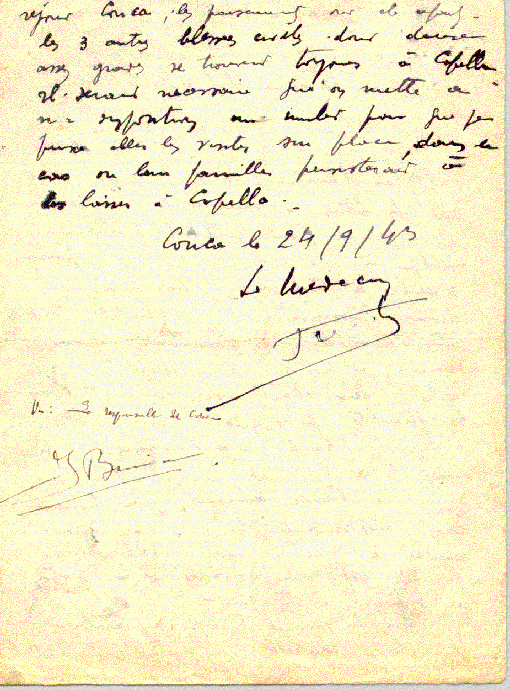 séjour Conca, les pansements ont été
les 3 autres blessés civils dont deux
assez graves se trouvent toujours à Capella
Il serait nécessaire qu'on mette à
disposition un mulet pour que je
puisse aller les visiter sur place, dans le
cas ou leur familles persisterait à
les laisser à Capella.
Conca le 24/9/43
Le Medecin
Vu: Le responsable de Conca